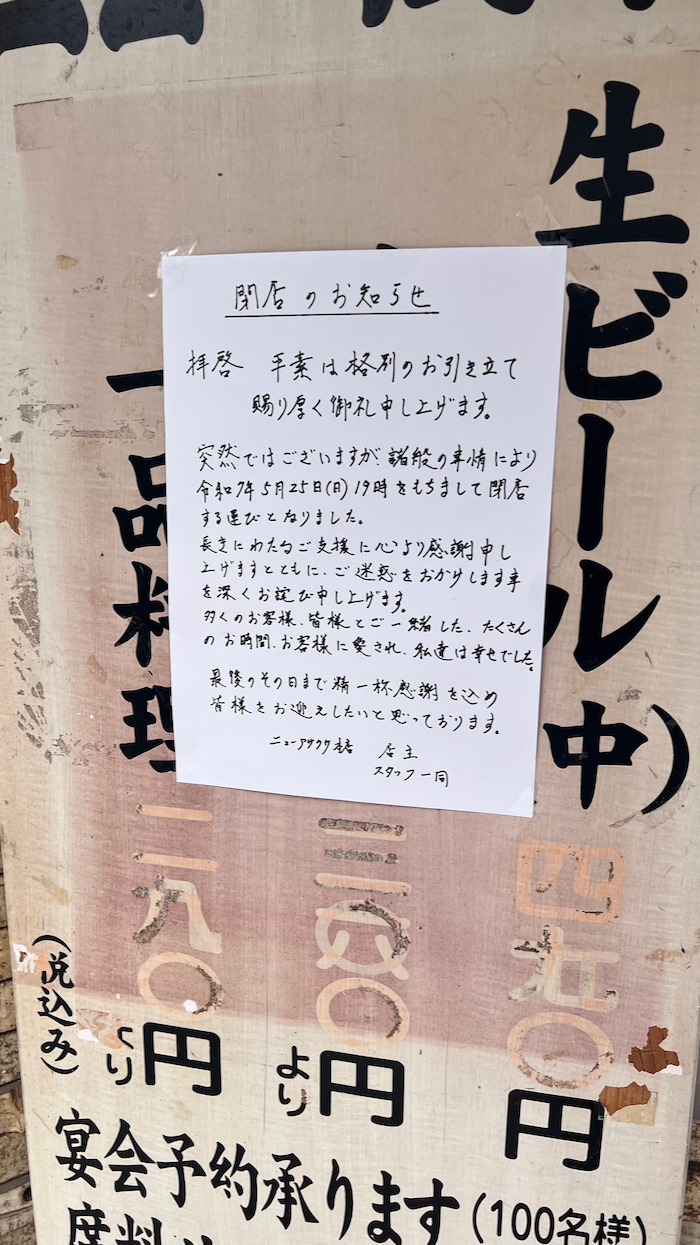 閉店のお知らせ
拝啓 平素は格別のお引き立て
賜り厚く御礼申し上げます。
突然ではございますが、諸般の事情により
令和7年5月25日(日)19時をもちまして閉店
する運びとなりました。
長きにわたるご支援に心より感謝申し
上げますとともに、ご迷惑をおかけします事
を深くお詫び申し上げます。
多くのお客様、皆様とご一緒した、たくさん
のお時間、お客様に愛され、私達は幸せでした。
最後のその日まで精一杯感謝を込め
皆様をお迎えしたいと思っております。
ニューアサクサ本店 店主
スタッフ一同
生ビール(中)
四九〇円
三八〇円より
一品料理
二九〇円より
(税込み)
宴会予約承ります(100名様)
席料